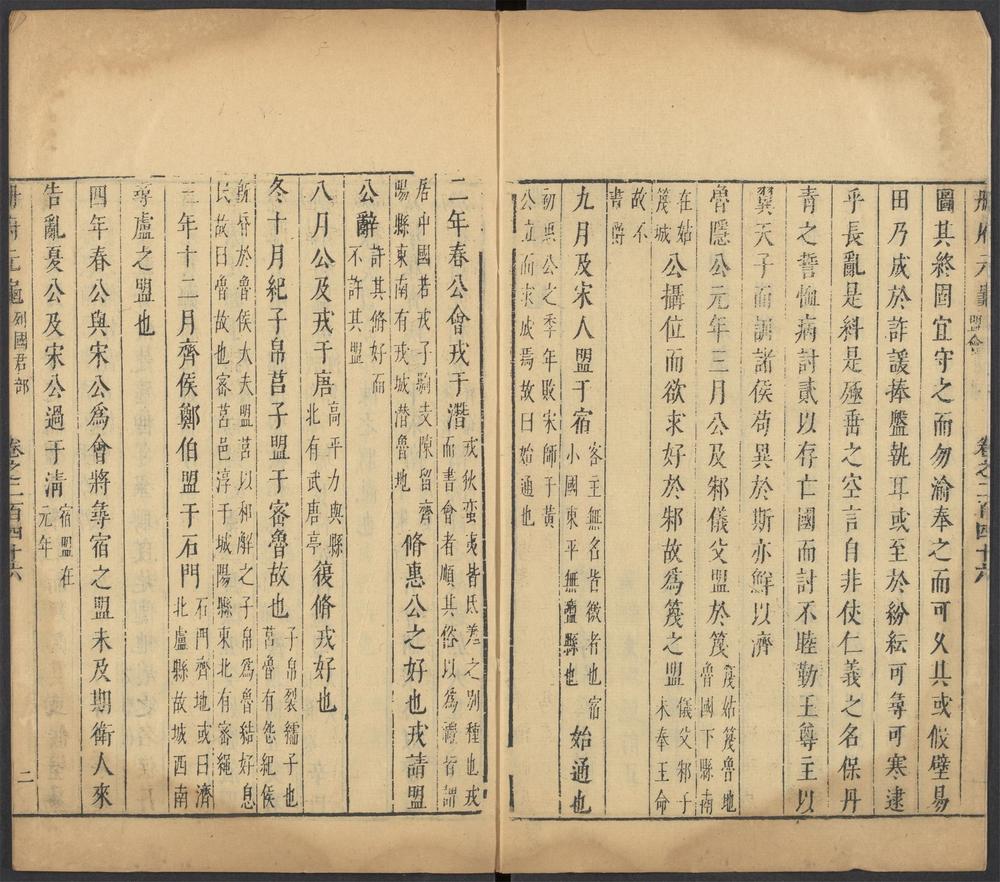 冊府元龜 盟會 卷之二百四十六
圖其終固宜守之而勿渝奉之而可乂其或假璧易
田乃成於詐諼捧盤執耳或至於紛紜可尋可寒逮
乎長亂是糾是殛垂之空言自非使仁義之名保丹
青之誓恤病討貳以存亡國而討不睦勤王尊主以
翼天子而訓諸侯苟異於斯亦鮮以濟
魯隱公元年三月公及邾儀父盟於篾篾姑篾魯地魯國下縣南
在姑篾城公攝位而欲求好於邾故爲篾之盟儀父邾子未奉王命
故不書爵
九月及宋人盟于宿客主無名皆微者也宿小國東平無鹽縣也始通也
初惠公之季年敗宋師于黃公立而求成焉故曰始通也
二年春公會戎于潛戎狄蛮夷皆氐羌之别種也戎而書會者順其俗以爲禮皆謂
居中國若戎子駒支陳留濟陽縣東南有戎城潛魯地脩惠公之好也戎請盟
公辭許其脩好而不許其盟
八月公及戎于唐高平力與縣北有武唐亭復脩戎好也
冬十月紀子帛莒子盟于密魯故也子帛裂繻子也莒魯有怨紀侯
新昏於魯使大夫盟莒以和解之子帛爲魯結好息民故曰魯故也密莒邑淳于城陽縣東北有密鄉
三年十二月齊侯鄭伯盟于石門石門齊地或曰濟北盧縣故城西南
尋盧之盟也
四年春公與宋公爲會將尋宿之盟未及期衛人來
告亂夏公及宋公過于清宿盟在元年
冊府元龜 列國君部 卷之二百四十六 二